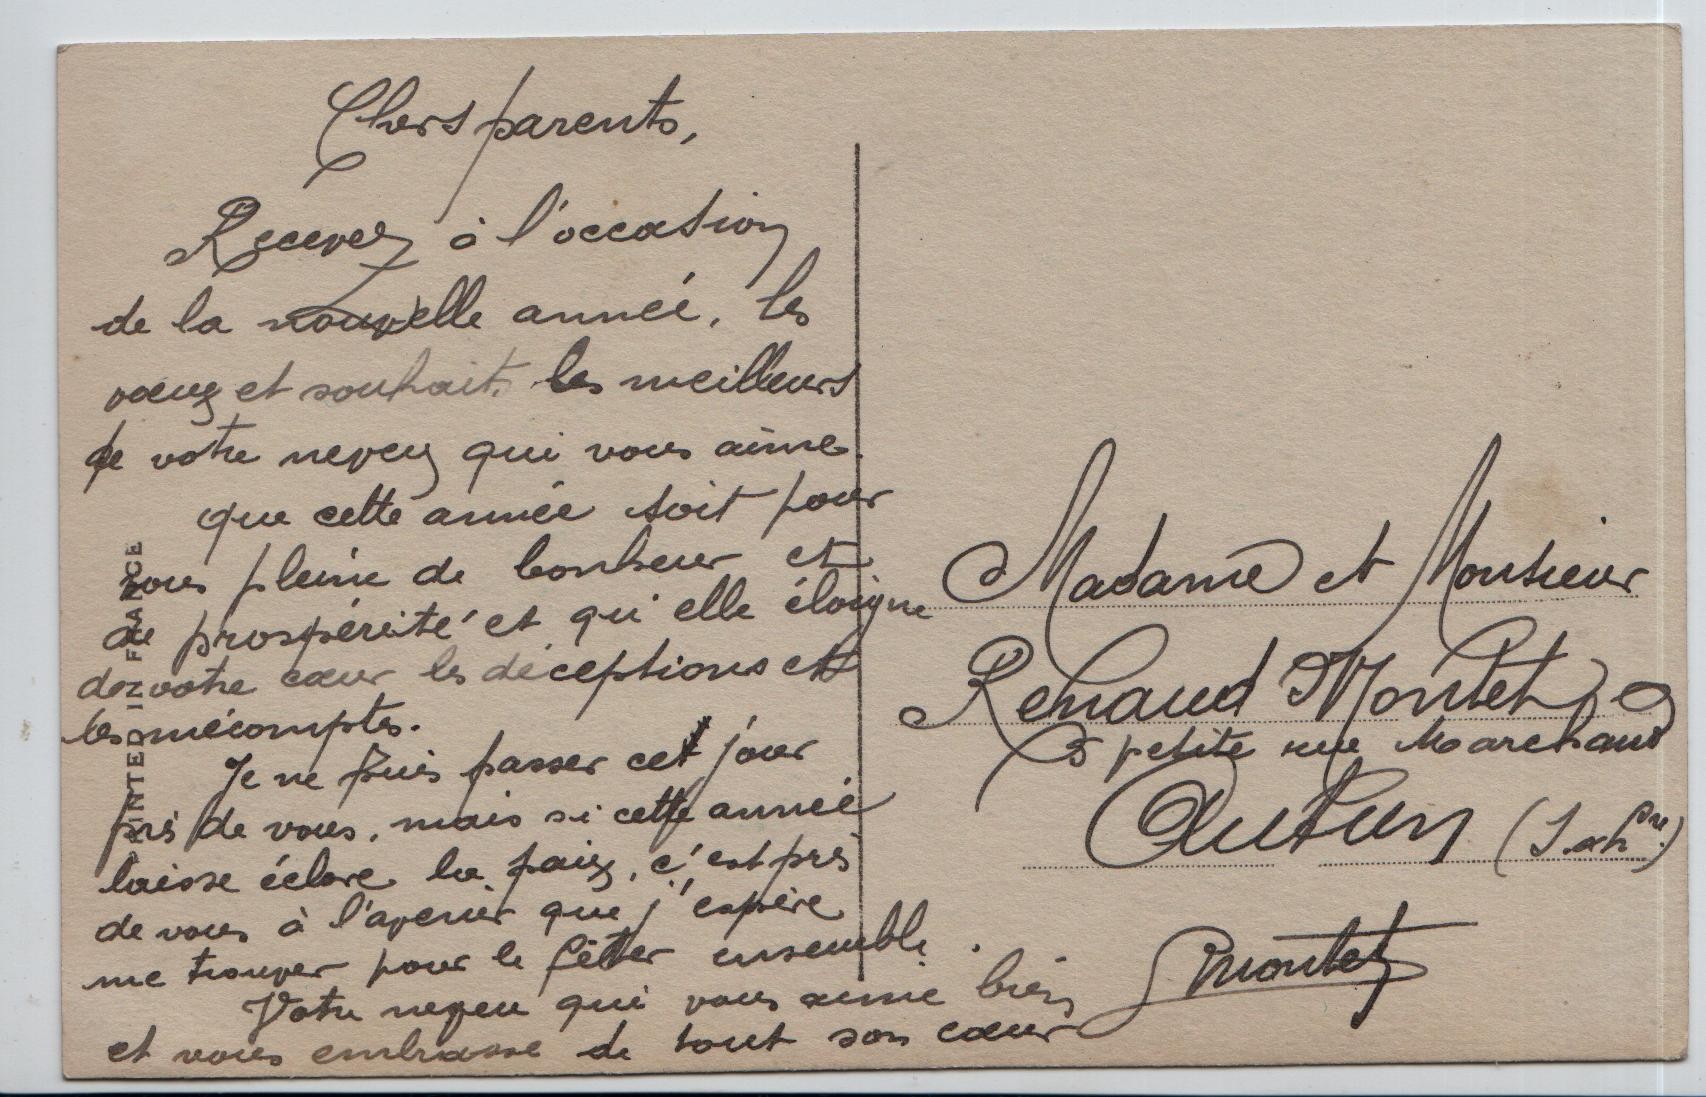 Chers parents,
Recevez à l'occasion
de la nouvelle année, les
vœux et souhaits les meilleurs
de votre neveu qui vous aime.
que cette année soit pour
vous pleine de bonheur et
de prospérité et qu'elle éloigne
de votre cœur les déceptions et
les mécomptes.
Je ne puis passer cet jour
près de vous, mais si cette année
laisse éclore la paix, c'est près
de vous à l'avenir que j'espère
me trouver pour le fêter ensemble.
Votre neveu qui vous aime bien
et vous embrasse de tout son cœur
Montet
Madame et Monsieur
Renaud Montet
petite rue Marchaud
Autun (S. et L.re)
PRINTED IN FRANCE